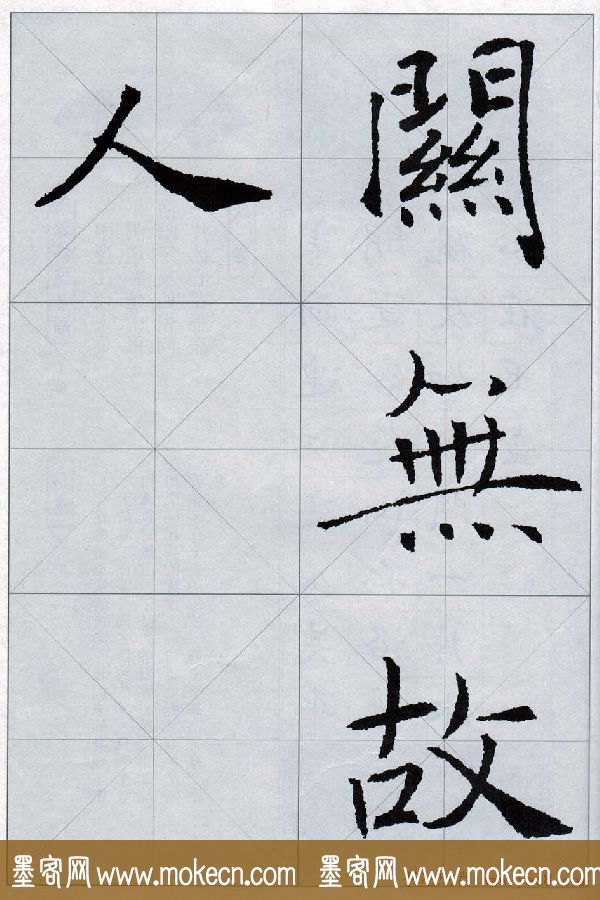 關無故
人
墨客网 www.mokecn.com 墨客网 www.mokecn.com